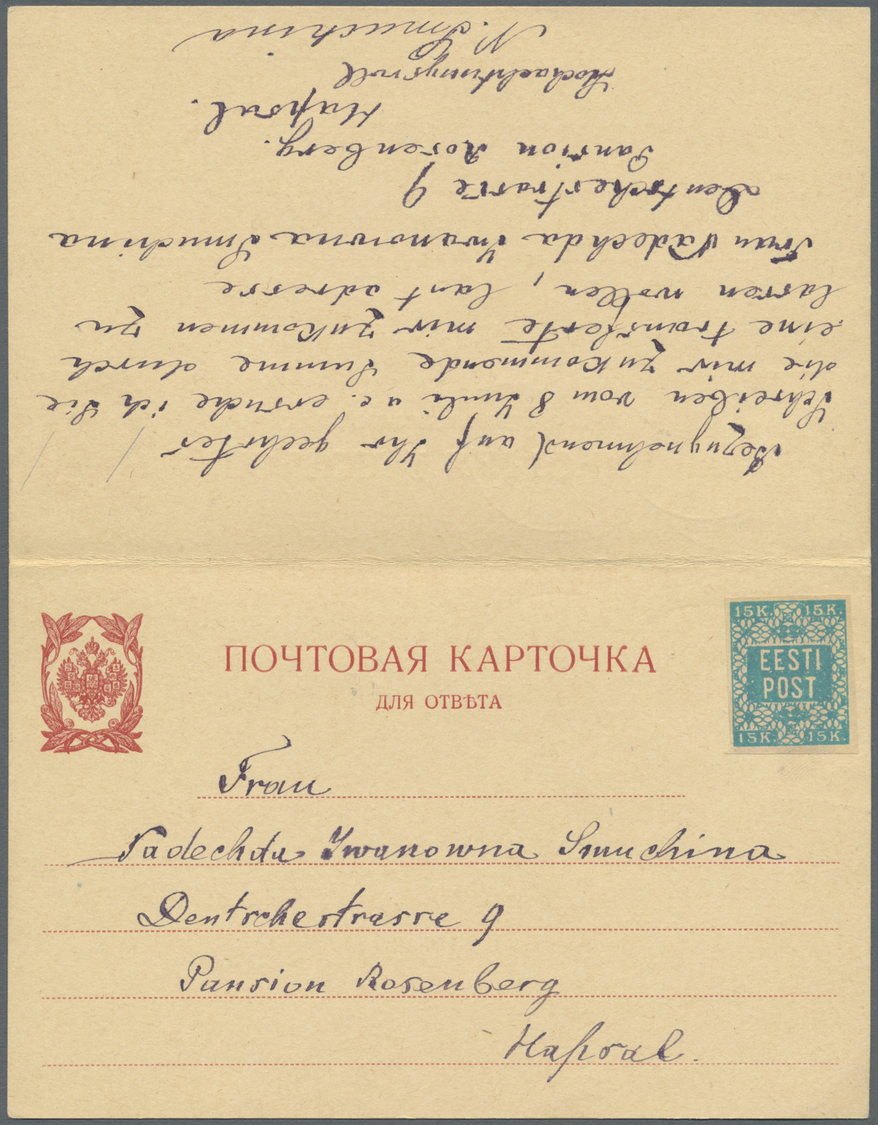 Bezugnehmend auf Ihr geehrtes
Schreiben vom 8 Junli a c. ersuche ich Sie
die mir zukommende Summe durch
eine transferte mir zukommen zu
lassen wollen, laut adresse
Frau Nadechda Iwanowna Smuchina
Deutschestrasse 9
Pansion Rosenberg.
Hapsal.
Hochachtungsvoll
N. Smuchina
ПОЧТОВАЯ КАРТОЧКА
ДЛЯ ОТВѢТА
15 K. 15 K.
EESTI
POST
15 K. 15 K.
Frau
Nadechda Iwanowna Smuchina
Deutschestrasse 9
Pansion Rosenberg
Hapsal.